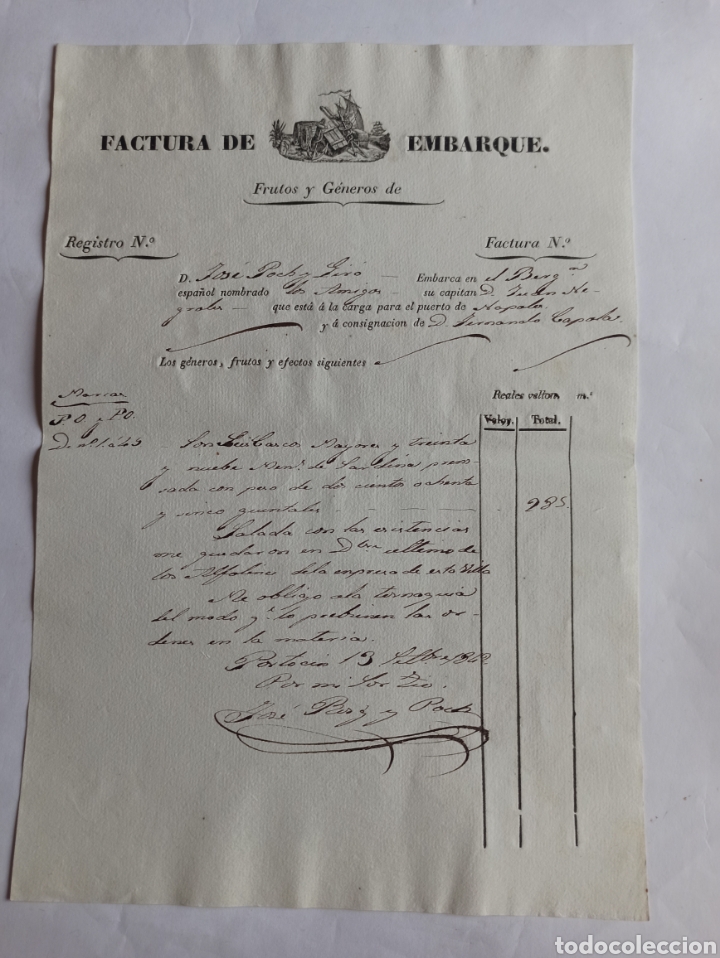 FACTURA DE EMBARQUE.
Frutos y Géneros de
Registro N.º Factura N.º
D. José Poch y Giró Embarca en el Berg.ⁿ
español nombrado los Amigos su capitan D. Juan
que está á la carga para el puerto de Napoles
y á consignacion de D. Fernando Capola.
Los géneros, frutos y efectos siguientes
Reales vellon m.s
Valor. Total.
Marcas
P.O y PO.
D. nº 1. á 43 Son Seis Cascos Mayores y treinta
y nueve Men.s de Sardina pren-
sada con peso de dos cientos ochenta
y cinco quintales 985
Salada con las existencias
me quedaron en Dbre ultimo de
los Alfolies de la empresa de esta Villa
Me obligo a la tornaguia
del modo q.e lo prebienen las or-
denes en la materia.
Portocin 13 1842
Por mi Sor Tio.
José y Poch
todocoleccion